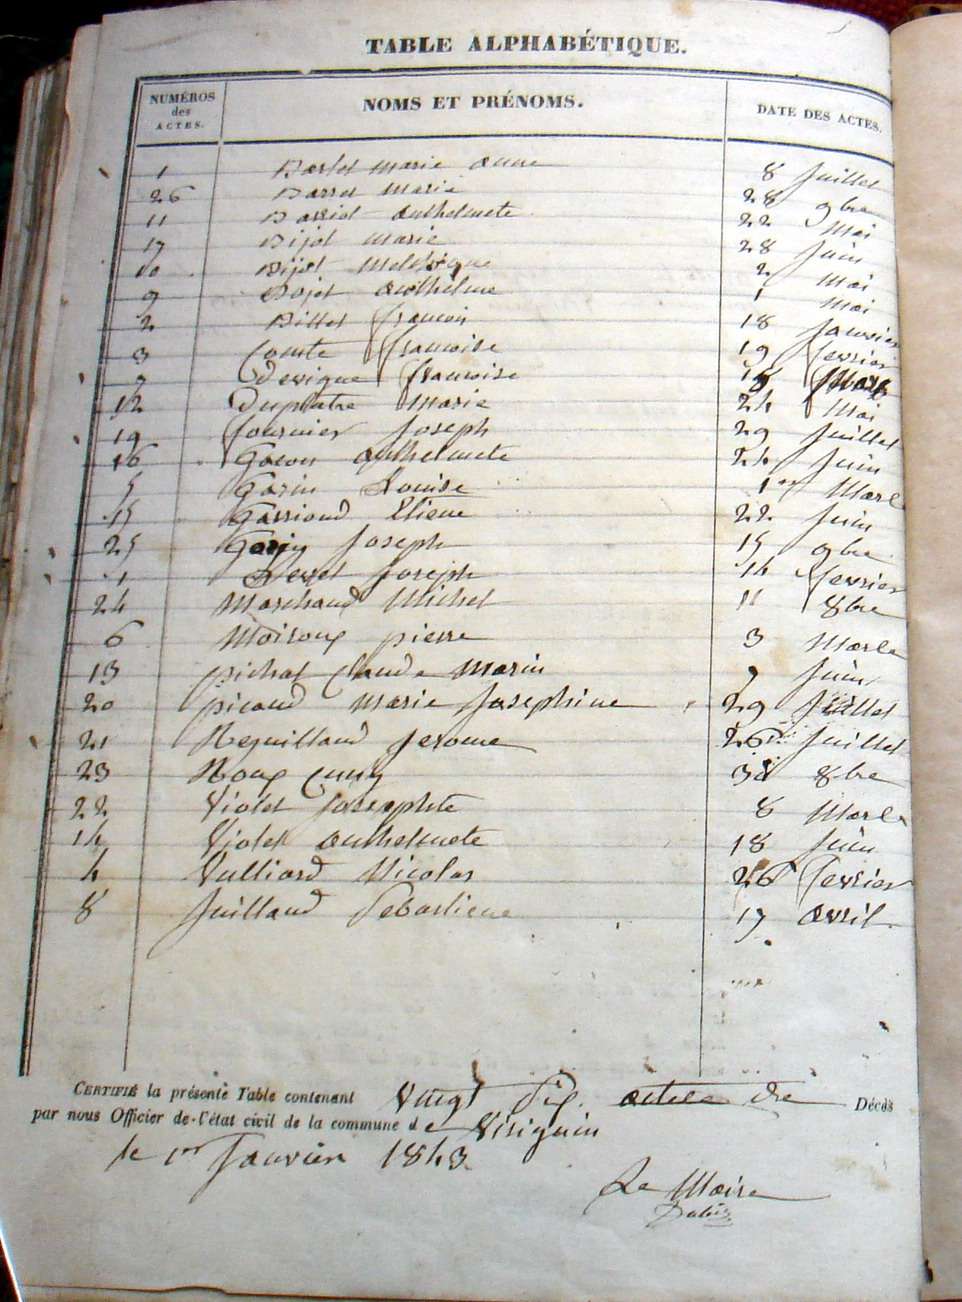 TABLE ALPHABÉTIQUE.
NUMÉROS des ACTES. NOMS ET PRÉNOMS. DATE DES ACTES.
1 Barlet marie anne 8 Juillet
26 Barret marie 28 9bre
11 anthelmete 22 Mai
17 Bijot marie 28 Juin
10 Bijot 2 Mai
9 Bojet anthelme 1 Mai
2 Billet francois 18 Janvier
3 Comte francoise 19 fevrier
7 Devigne francoise Mars
12 Duplatre Marie 24 Mai
19 fournier Joseph 29 Juillet
16 Gacon anthelmete 24 Juin
5 Garin Louise 1er Mars
15 Garrioud 22 Juin
25 Joseph 15 9bre
1 Joseph 14 fevrier
24 Marchand Michel 11 8bre
6 Moiroux pierre 3 Mars
13 pichat Claude Marin 7 Juin
20 picaud Marie Josephine 29 Juillet
21 Reguillaud Jerome 26 Juillet
23 Roux Cuny 8bre
22 Violet Josephte 8 Mars
14 Violet anthelmete 18 Juin
4 Vulliard Nicolas 26 fevrier
8 Juillaud Sebastiene 17 avril
CERTIFIÉ la présente Table contenant Vingt Six actes de Décès
par nous Officier de l'état civil de la commune de Virignin
le 1er Janvier 1843
Le Maire